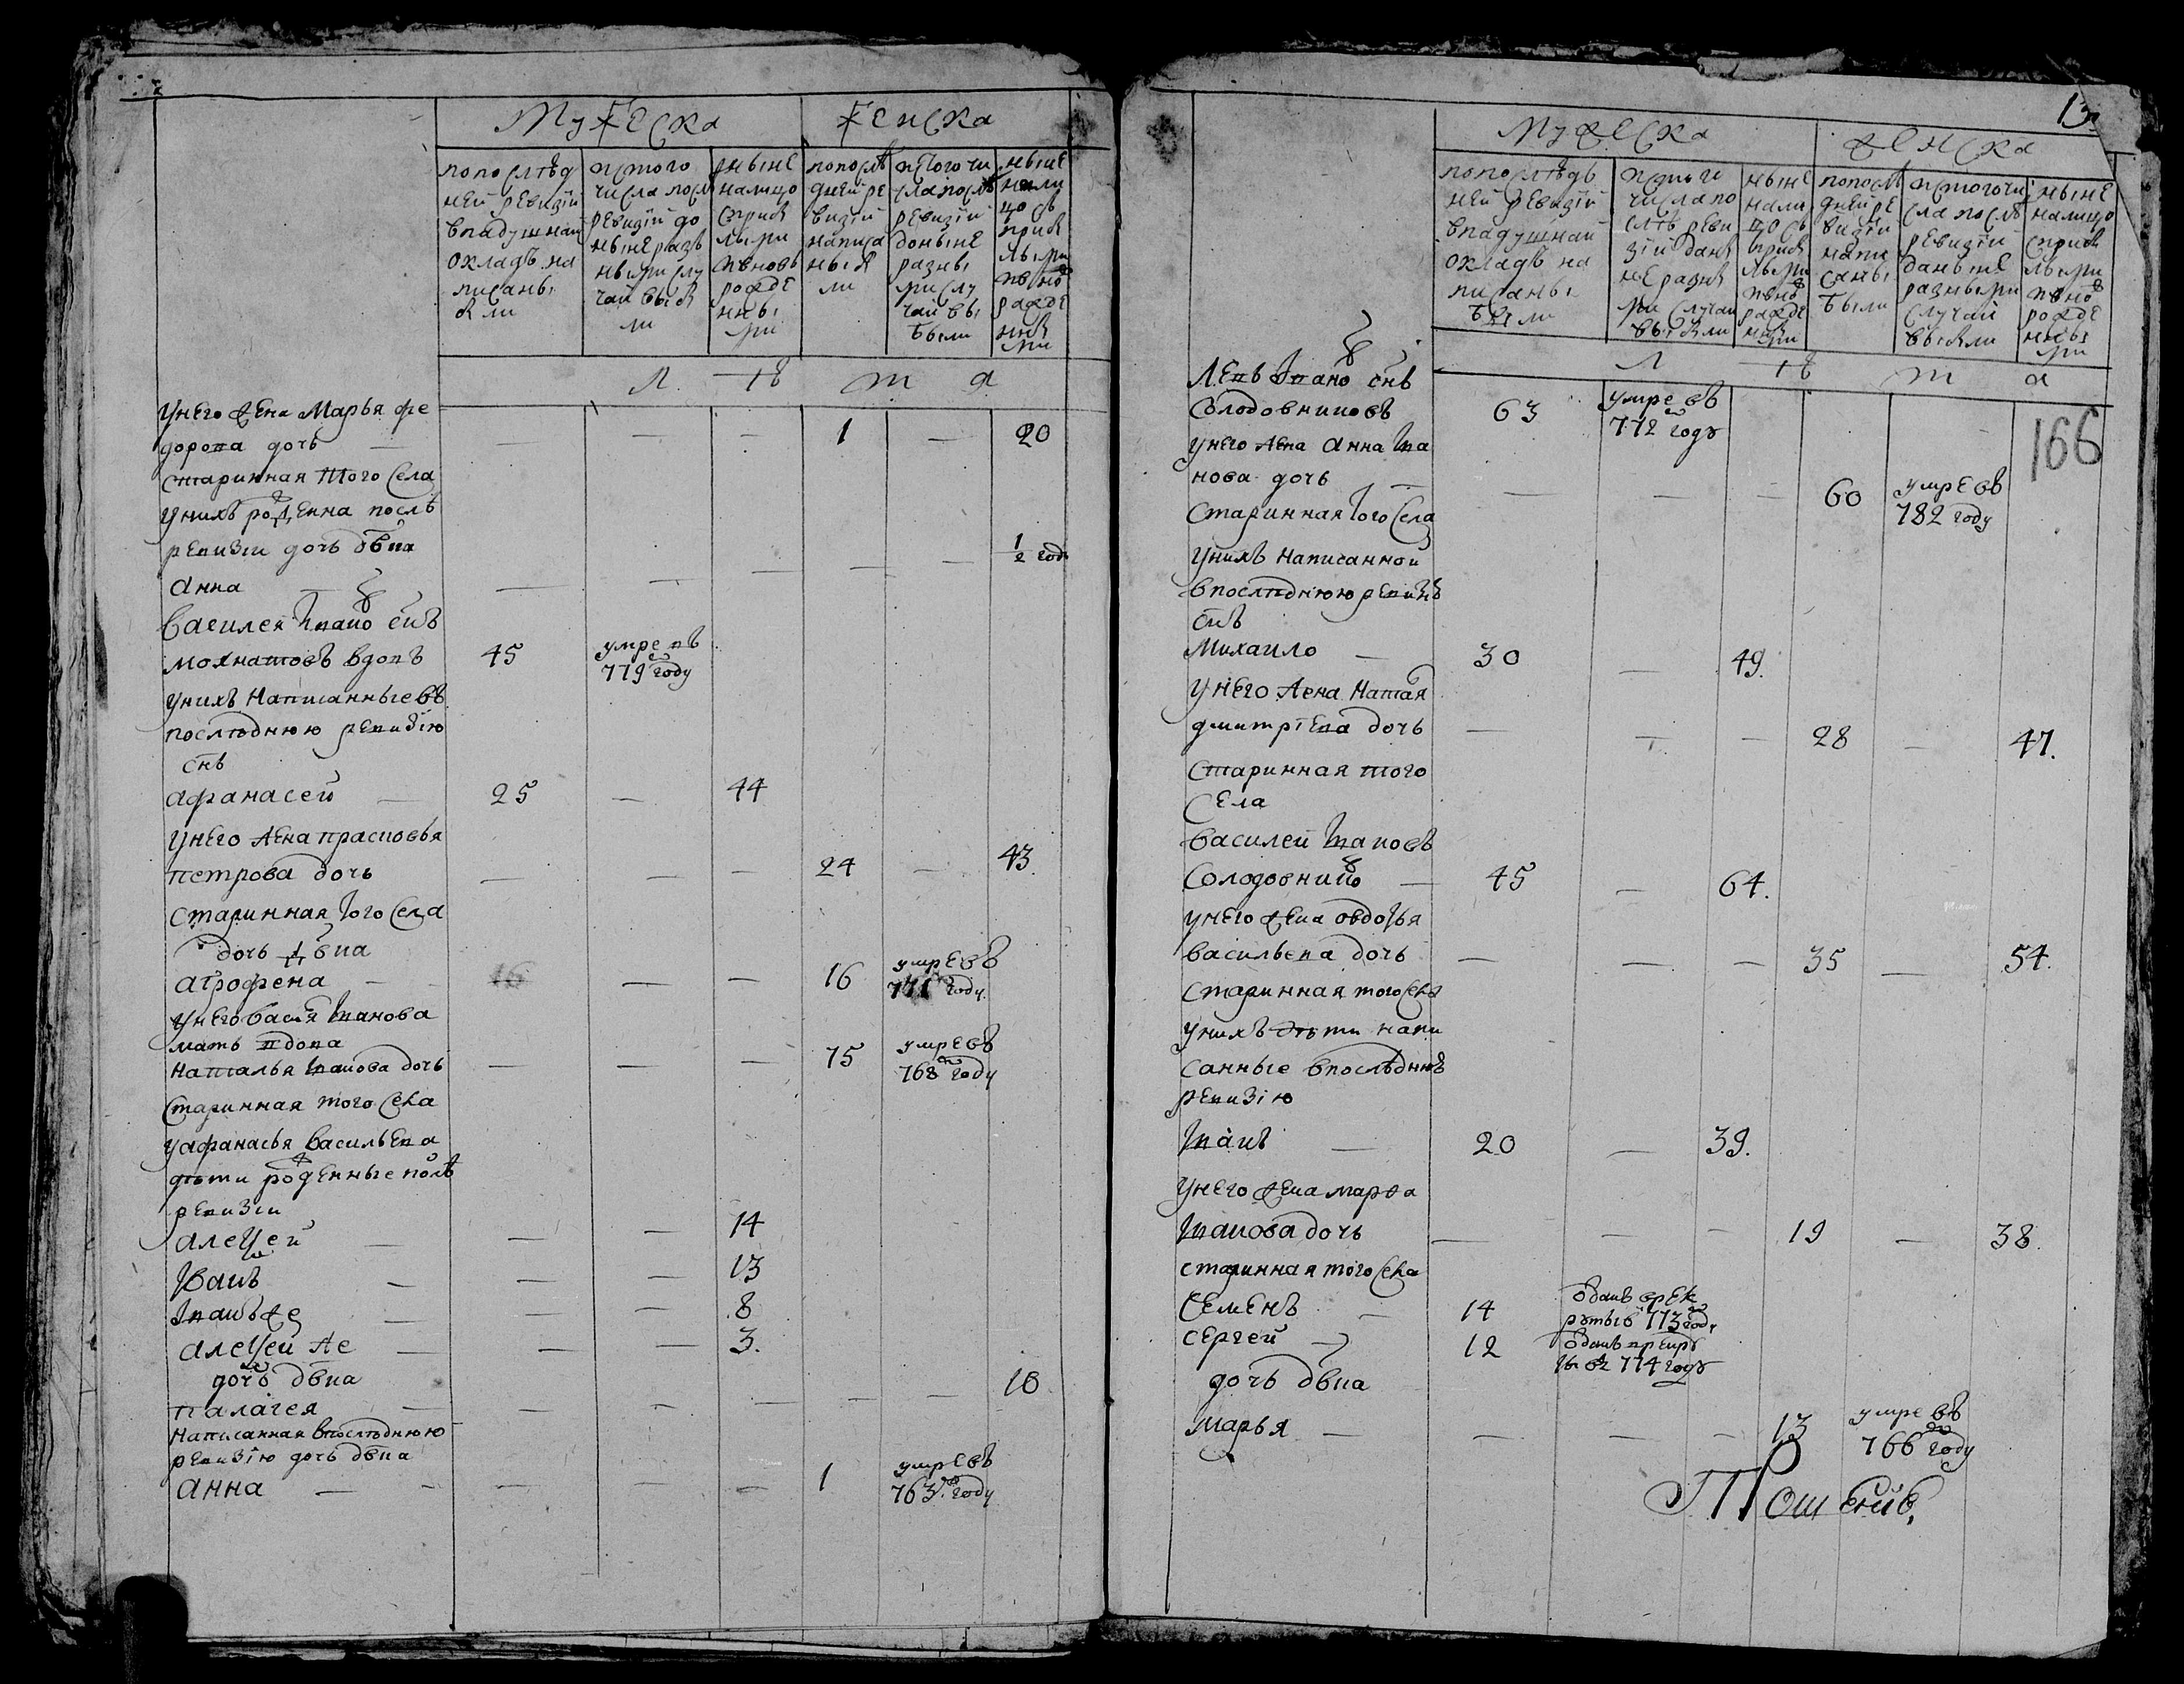 Мужеска
Женска
попослѣд
ней ревизїи
вподушнай
окладъ на
писаны
были
истого
числа посл
ревизїи до
нынеразъ
ными слу
чаи выбы
ли
ныне
налицо
сприбы
лыми
ивновь
рожде
нны
ми
попослѣ
дней ре
визїи
написа
ныбы
ли
истогочи
слапослѣ
ревизїи
доныне
разны
ми слу
чаи вы
были
ныне
нали
цо съ
прибы
лыми
ивно
рожде
ннны
ми
Л ѣ т а
унего жена Марья фе
дорова дочь — — — — 1 — 20
старинная того села
унихъ рожденна послѣ
ревизїи дочь двка
анна — — — — — — 1/2 год
василей Ивано снъ
мохнатовъ вдовъ 45 умре въ
779 году
унихъ написанные въ
послѣднюю ревизїю
снъ
афанасей — 25 — 44
унего жена прасковья
петрова дочь — — — 24 — 43
старинная того села
дочь двка
агрофена — 16 — — 16 умре въ
771 году
унего васи Иванова
мать вдова
наталья Иванова дочь — — — 75 умре въ
768 году
старинная того села
уафанасья васильева
дѣти рожденные послѣ
ревизїи
алексей — — — 14
Иванъ — — — 13
Иванъ же — — — 8
алексей же — — — 3.
дочь двка
палагея — — — — — — 10
написанная впослѣднюю
ревизїю дочь двка
анна — — — — 1 умре въ
763 году
13
Мужеска
женска
попослѣдь
ней ревизїи
вподушнай
окладъ на
писаны
были
истого
числа по
слѣ реви
зїи даны
не разны
ми случаи
выбыли
ныне
нали
цо съ
прибы
лыми
ивно
рожде
нны
ми
попослѣ
дней ре
визїи
напи
саны
были
истогочи
сла послѣ
ревизїи
даныне
разными
случаи
выбыли
ныне
налицо
сприбы
лыми
ивно
рожде
нны
ми
Л ѣ т а
Левъ Ивано снъ
Солодовниковъ 63 умре въ
772 году
166
унего жена анна Ива
нова дочь — — — — 60 умре въ
782 году
старинная того села
унихъ написанной
впослѣднюю ревизї
снъ
Михаило — 30 — 49.
унего жена Ната
дмитрїева дочь — — — 28 — 47.
старинная того
села
василей Ивановъ
Солодовнико — 45 — 64.
унего жена овдотья
васильева дочь — — — 35 — 54.
старинная того села
унихъ дѣти напи
санные впослѣдню
ревизїю
Иванъ — 20 — 39.
унего жена марфа
Иванова дочь — — — 19 — 38.
старинная того села
Семенъ — 14 оданъ врек
руты в 773 году
Сергей — 12 оданъ врекру
ты въ 774 году
дочь двка
Марья — — — — 13 умре въ
766 году